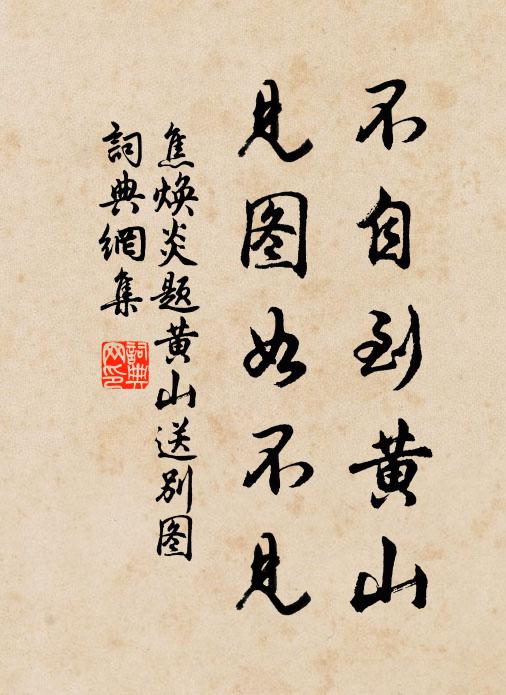 不自到黄山
见图如不见
焦焕炎题黄山送别图
詞典網集
詞典
网印